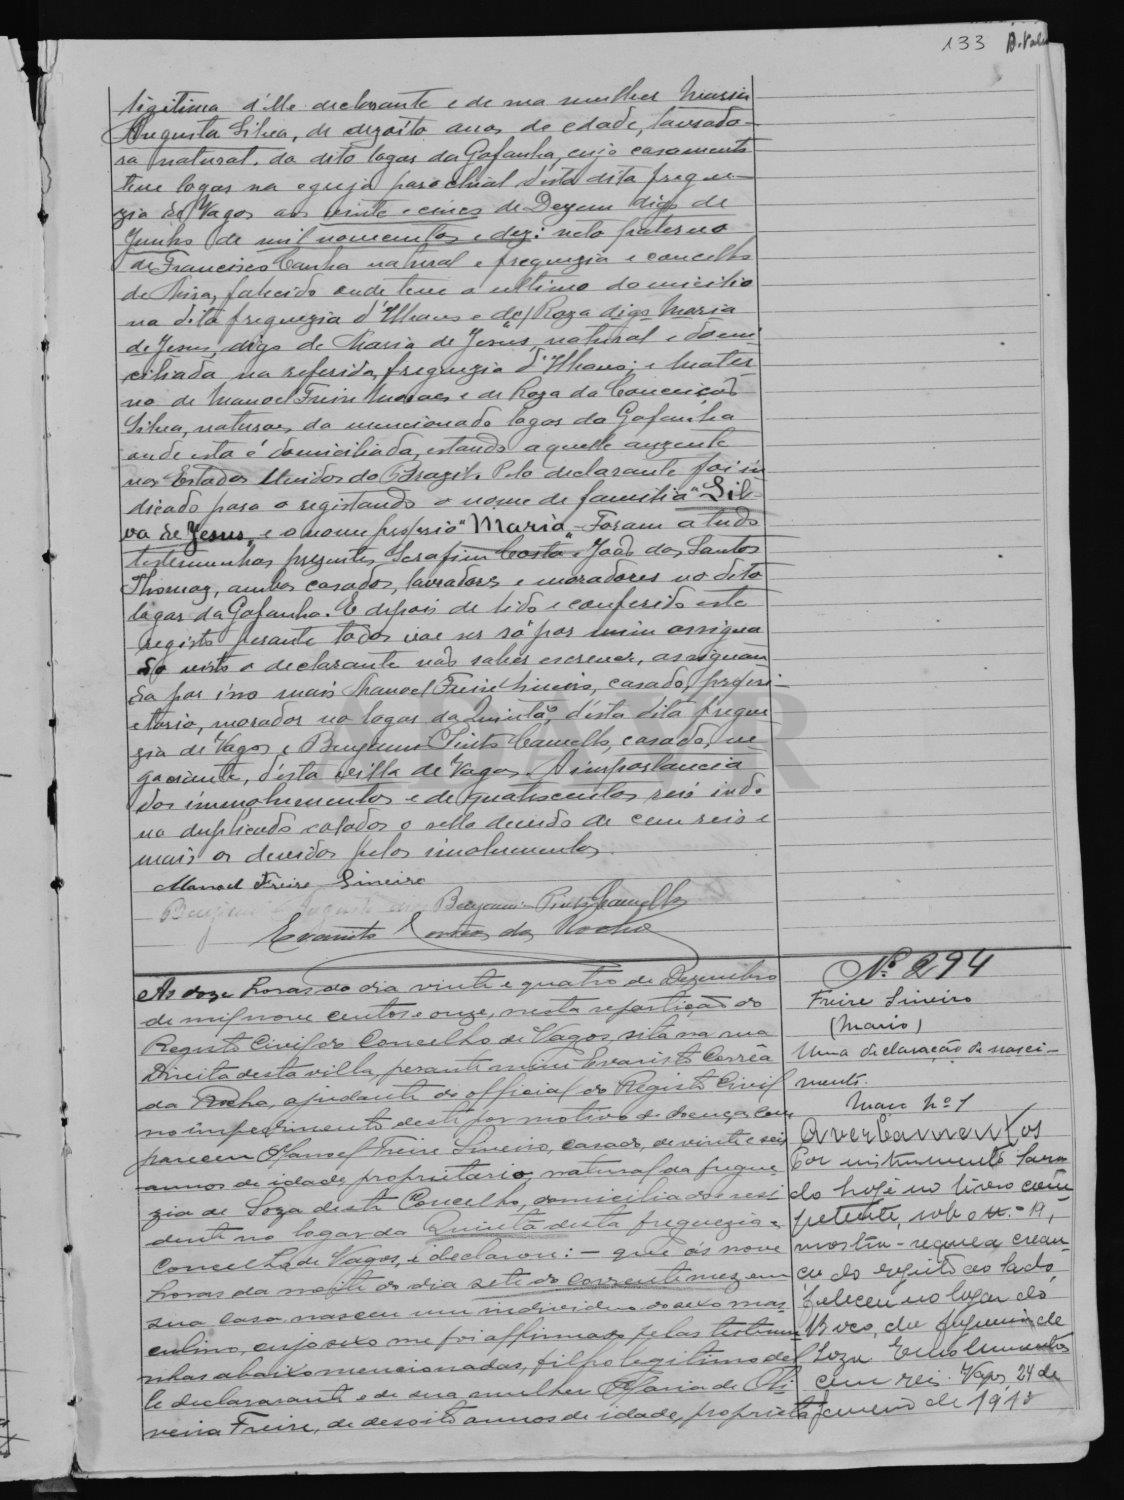 133
legitima d'elle declarante e de sua mulher Maria
Augusta Silva, de dezoito anos de edade, lavrado-
ra natural do dito logar da Gafanha, cujo casamento
teve logar na egreja parochial d'esta dita fregue-
zia de Vagos aos vinte e cinco de Dezem digo de
Junho de mil novecentos e dez: neto paterno
de Francisco Canha natural e freguezia e concelho
de Mira, falecido onde teve o ultimo domicilio
na dita freguezia d'Ilhavo e de Roza digo Maria
de Jesus, digo de Maria de Jesus, natural e domi-
ciliada na referida freguezia d'Ilhavo; e mater-
no de Manoel Freire Moraes e de Roza da Conceição
Silva, naturaes do mencionado logar da Gafanha
onde esta é domiciliada, estando aquelle auzente
nos Estados Unidos do Brazil. Pelo declarante foi in
dicado para o registando o nome de familia "Sil-
va de Jesus" e o nome proprio "Maria". Foram a tudo
testemunhas prezentes Serafim Costa e João dos Santos
Thomaz, ambos casados, lavradores e moradores no dito
logar da Gafanha. E depois de lido e conferido este
registo perante todos vae ser só por mim assigna
do visto o declarante não saber escrever, assignan
do por isso mais Manoel Freire Sineiro, casado, propri-
etario, morador no logar da Quintã, d'esta dita fregue
zia de Vagos e Benjamim Pinto Camello, casado, ne-
gociante, d'esta villa de Vagos. A importancia
dos imolumentos e de quatrocentos reis indo
no duplicado colados o sello devido de cem reis e
mais os devidos pelos imolumentos.
Manoel Freire Sineiro
Benjamim Pinto Camello
Evaristo Corrêa da Rocha
As doze horas do dia vinte e quatro de Dezembro
de mil nove centos e onze, nesta repartição do
Registo Civil do Concelho de Vagos, sita na rua
Direita desta villa, perante mim Evaristo Corrêa
da Rocha, ajudante do official do Registo Civil
no impedimento deste por motivo de doença, com
pareceu Manoel Freire Sineiro, casado, de vinte e seis
annos de idade, proprietario, natural da fregue-
zia de Soza deste Concelho, domiciliado e resi
dente no logar da Quintã desta freguezia e
Concelho de Vagos, e declarou: - que ás nove
horas da noite do dia sete do corrente mez em
sua casa nasceu um individuo do sexo mas-
culino, cujo sexo me foi affirmado pelas testemu
nhas abaixo mencionadas, filho legitimo del
le declararante e de sua mulher Maria de Oli
veira Freire, de desoito annos de idade, proprieta
Nº 294
Freire Sineiro
(Mario)
Uma declaração de nasci-
mento.
Maço nº 1
Averbamentos
Por instrumento lavra
do hoje no livro com
petente, sob o n.º 19,
mostra-se que a crean-
ça do registo ao lado
faleceu no logar do
Boco, da freguezia de
Soza. Emolumentos
cem reis. Vagos, 24 de
Janeiro de 1912